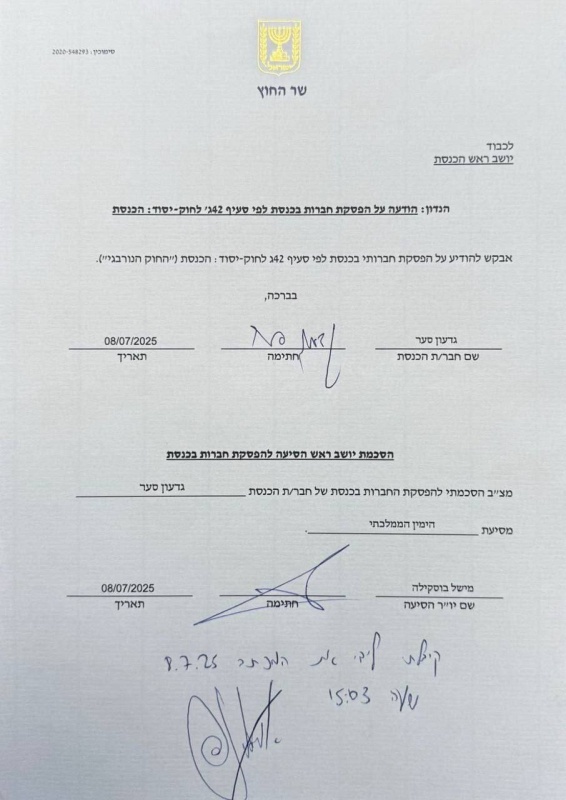 סימוכין : 2020-548293
שר החוץ
לכבוד
יושב ראש הכנסת
הנדון: הודעה על הפסקת חברות בכנסת לפי סעיף 42ג' לחוק-יסוד: הכנסת
אבקש להודיע על הפסקת חברותי בכנסת לפי סעיף 42ג לחוק-יסוד: הכנסת ("החוק הנורבגי").
בברכה,
גדעון סער 08/07/2025
שם חבר/ת הכנסת חתימה תאריך
הסכמת יושב ראש הסיעה להפסקת חברות בכנסת
מצ"ב הסכמתי להפסקת החברות בכנסת של חבר/ת הכנסת גדעון סער
מסיעת הימין הממלכתי.
מישל בוסקילה 08/07/2025
שם יו"ר הסיעה חתימה תאריך
קיבלתי לידי את המכתב 8.7.25
שעה 15:03